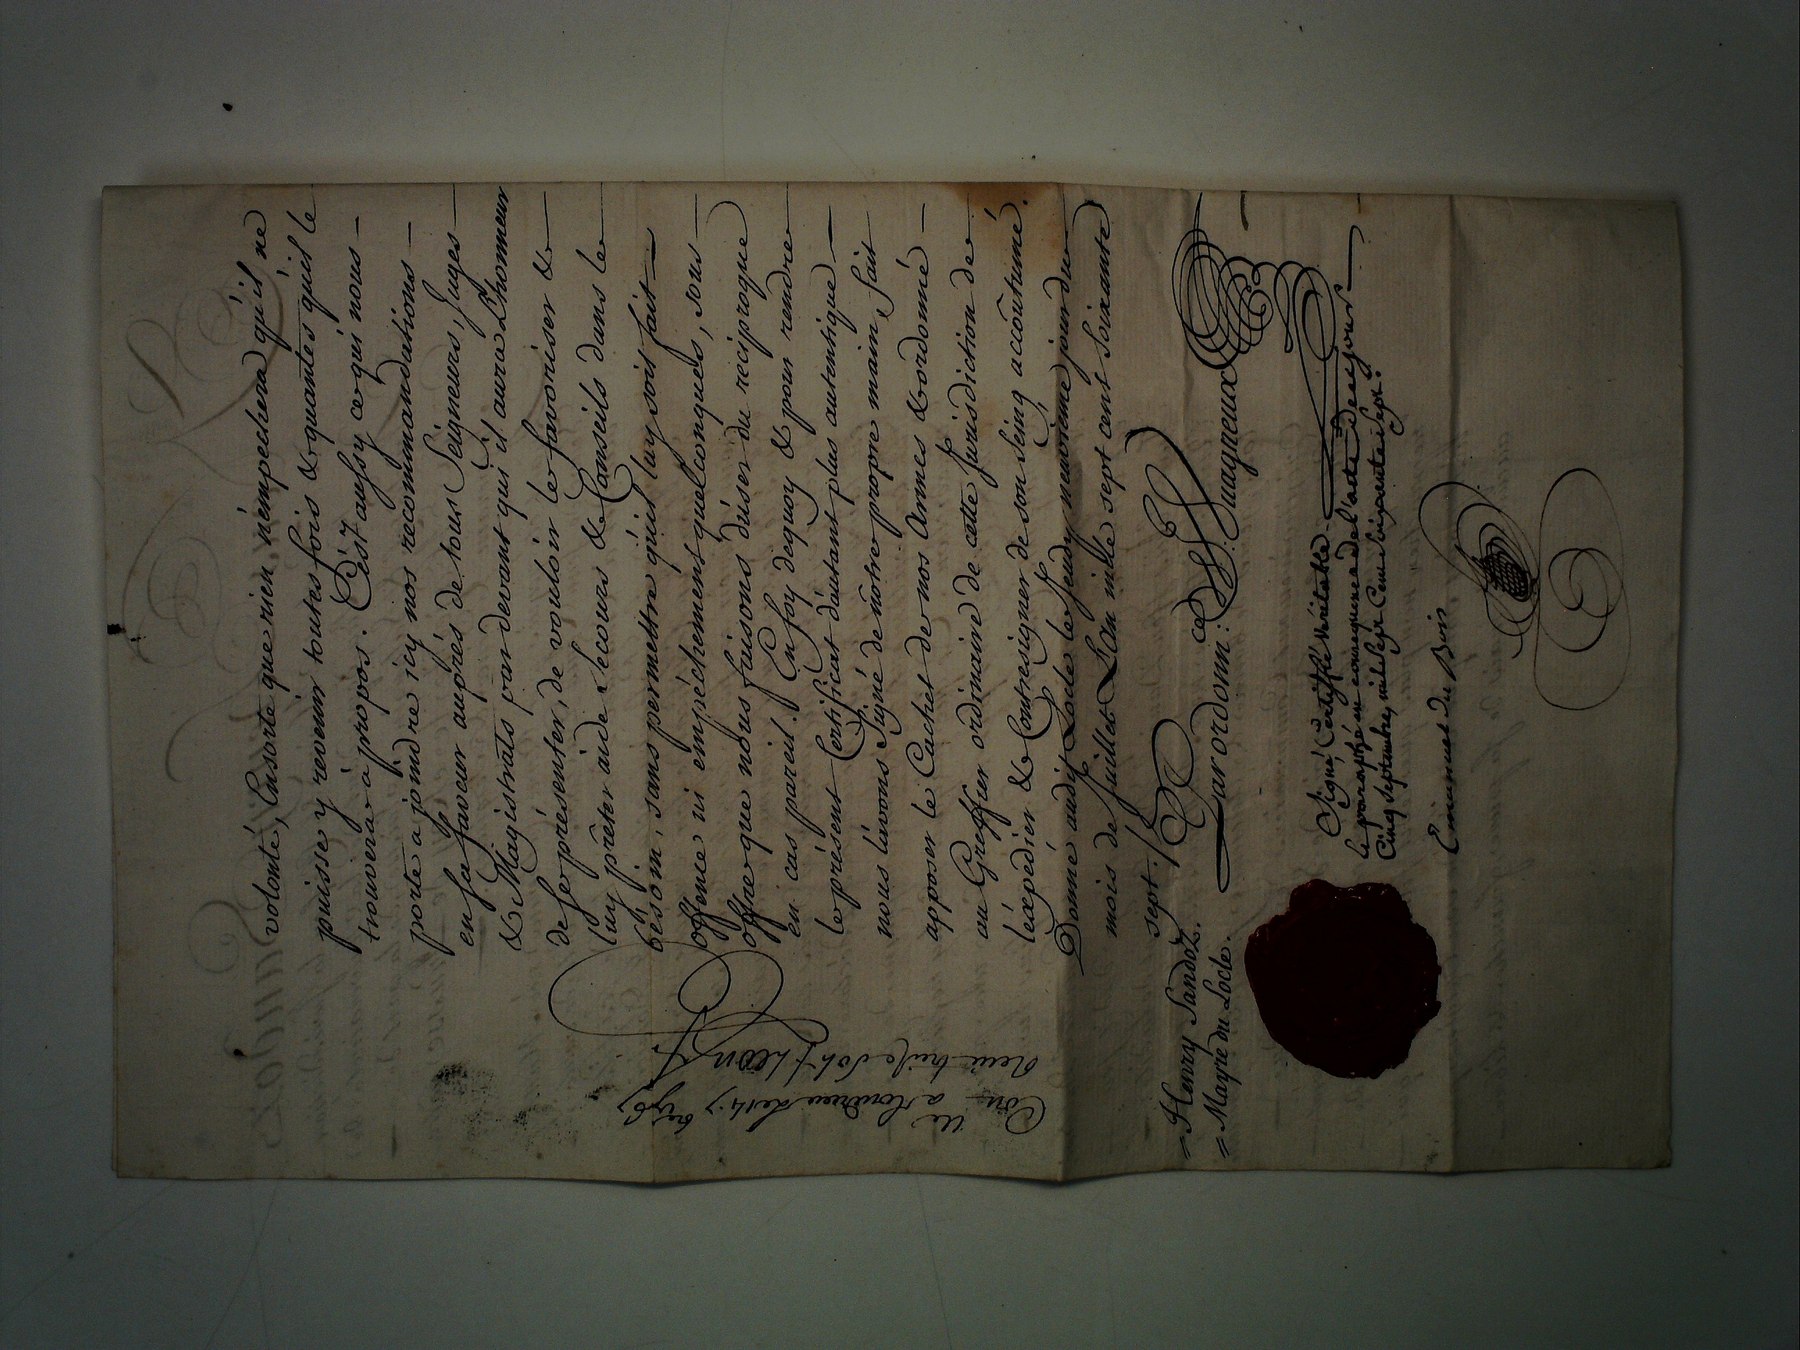 volonté, Ensorte que rien n'empechera qu'il ne
puisse y revenir toutes fois & quantes qu'il le
trouvera à propos. C'est aussy ce qui nous
porte a joindre icy nos recommandations
en sa faveur auprés de tous Seigneurs, Juges
& Magistrats par devant qui il aura L'honneur
de se présenter, de vouloir le favoriser &
luy prêter aide secours & Conseils dans le
bésoin, sans permettre qu'il luy sois fait
offence ni empéchement quelconques, sous
offre que nous faisons d'úser du reciproque
en cas pareil. En foy dequoy & pour rendre
le présent Certificat d'autant plus autentique
nous l'avons Signé de nôtre propre main, fait
apposer le Cachet de nos Armes & ordonné
au Greffier ordinaire de cette Jurisdiction de
l'éxpédier & Contresigner de son Seing accoûtumé.
Donné audit Locle le Jeudy neuvième jour du
mois de Juillet L'An mille sept cent soixante
sept./.
= Henry Sandoz.
= Mayre du Locle.
Par ordonn:
Signé Certiffié Veritable
le paraphé en consequence de l'acte de ce jour
Cinq Septembre, mil Sept Cent
Emanuel du Bois